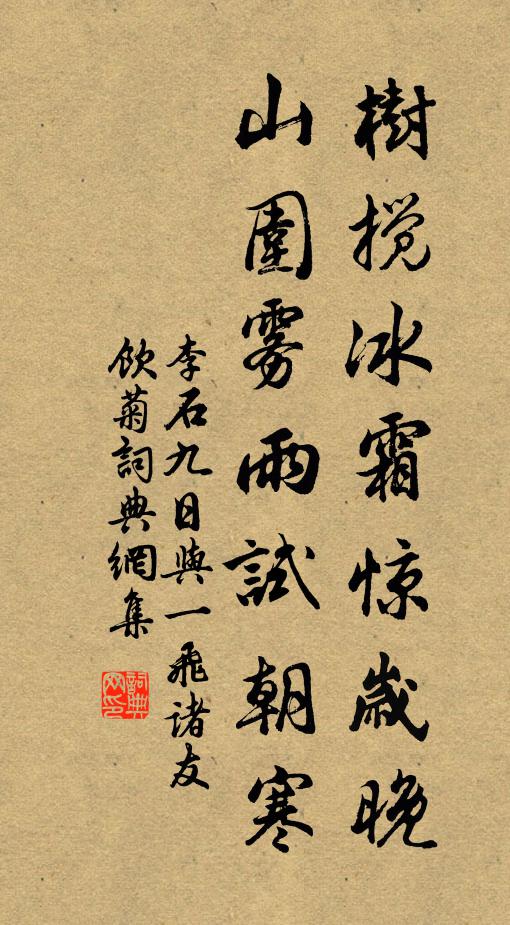 樹搅冰霜惊歲晚
山圍雾雨試朝寒
李石九日與一飛諸友
飲菊詞典網集
詞典网印